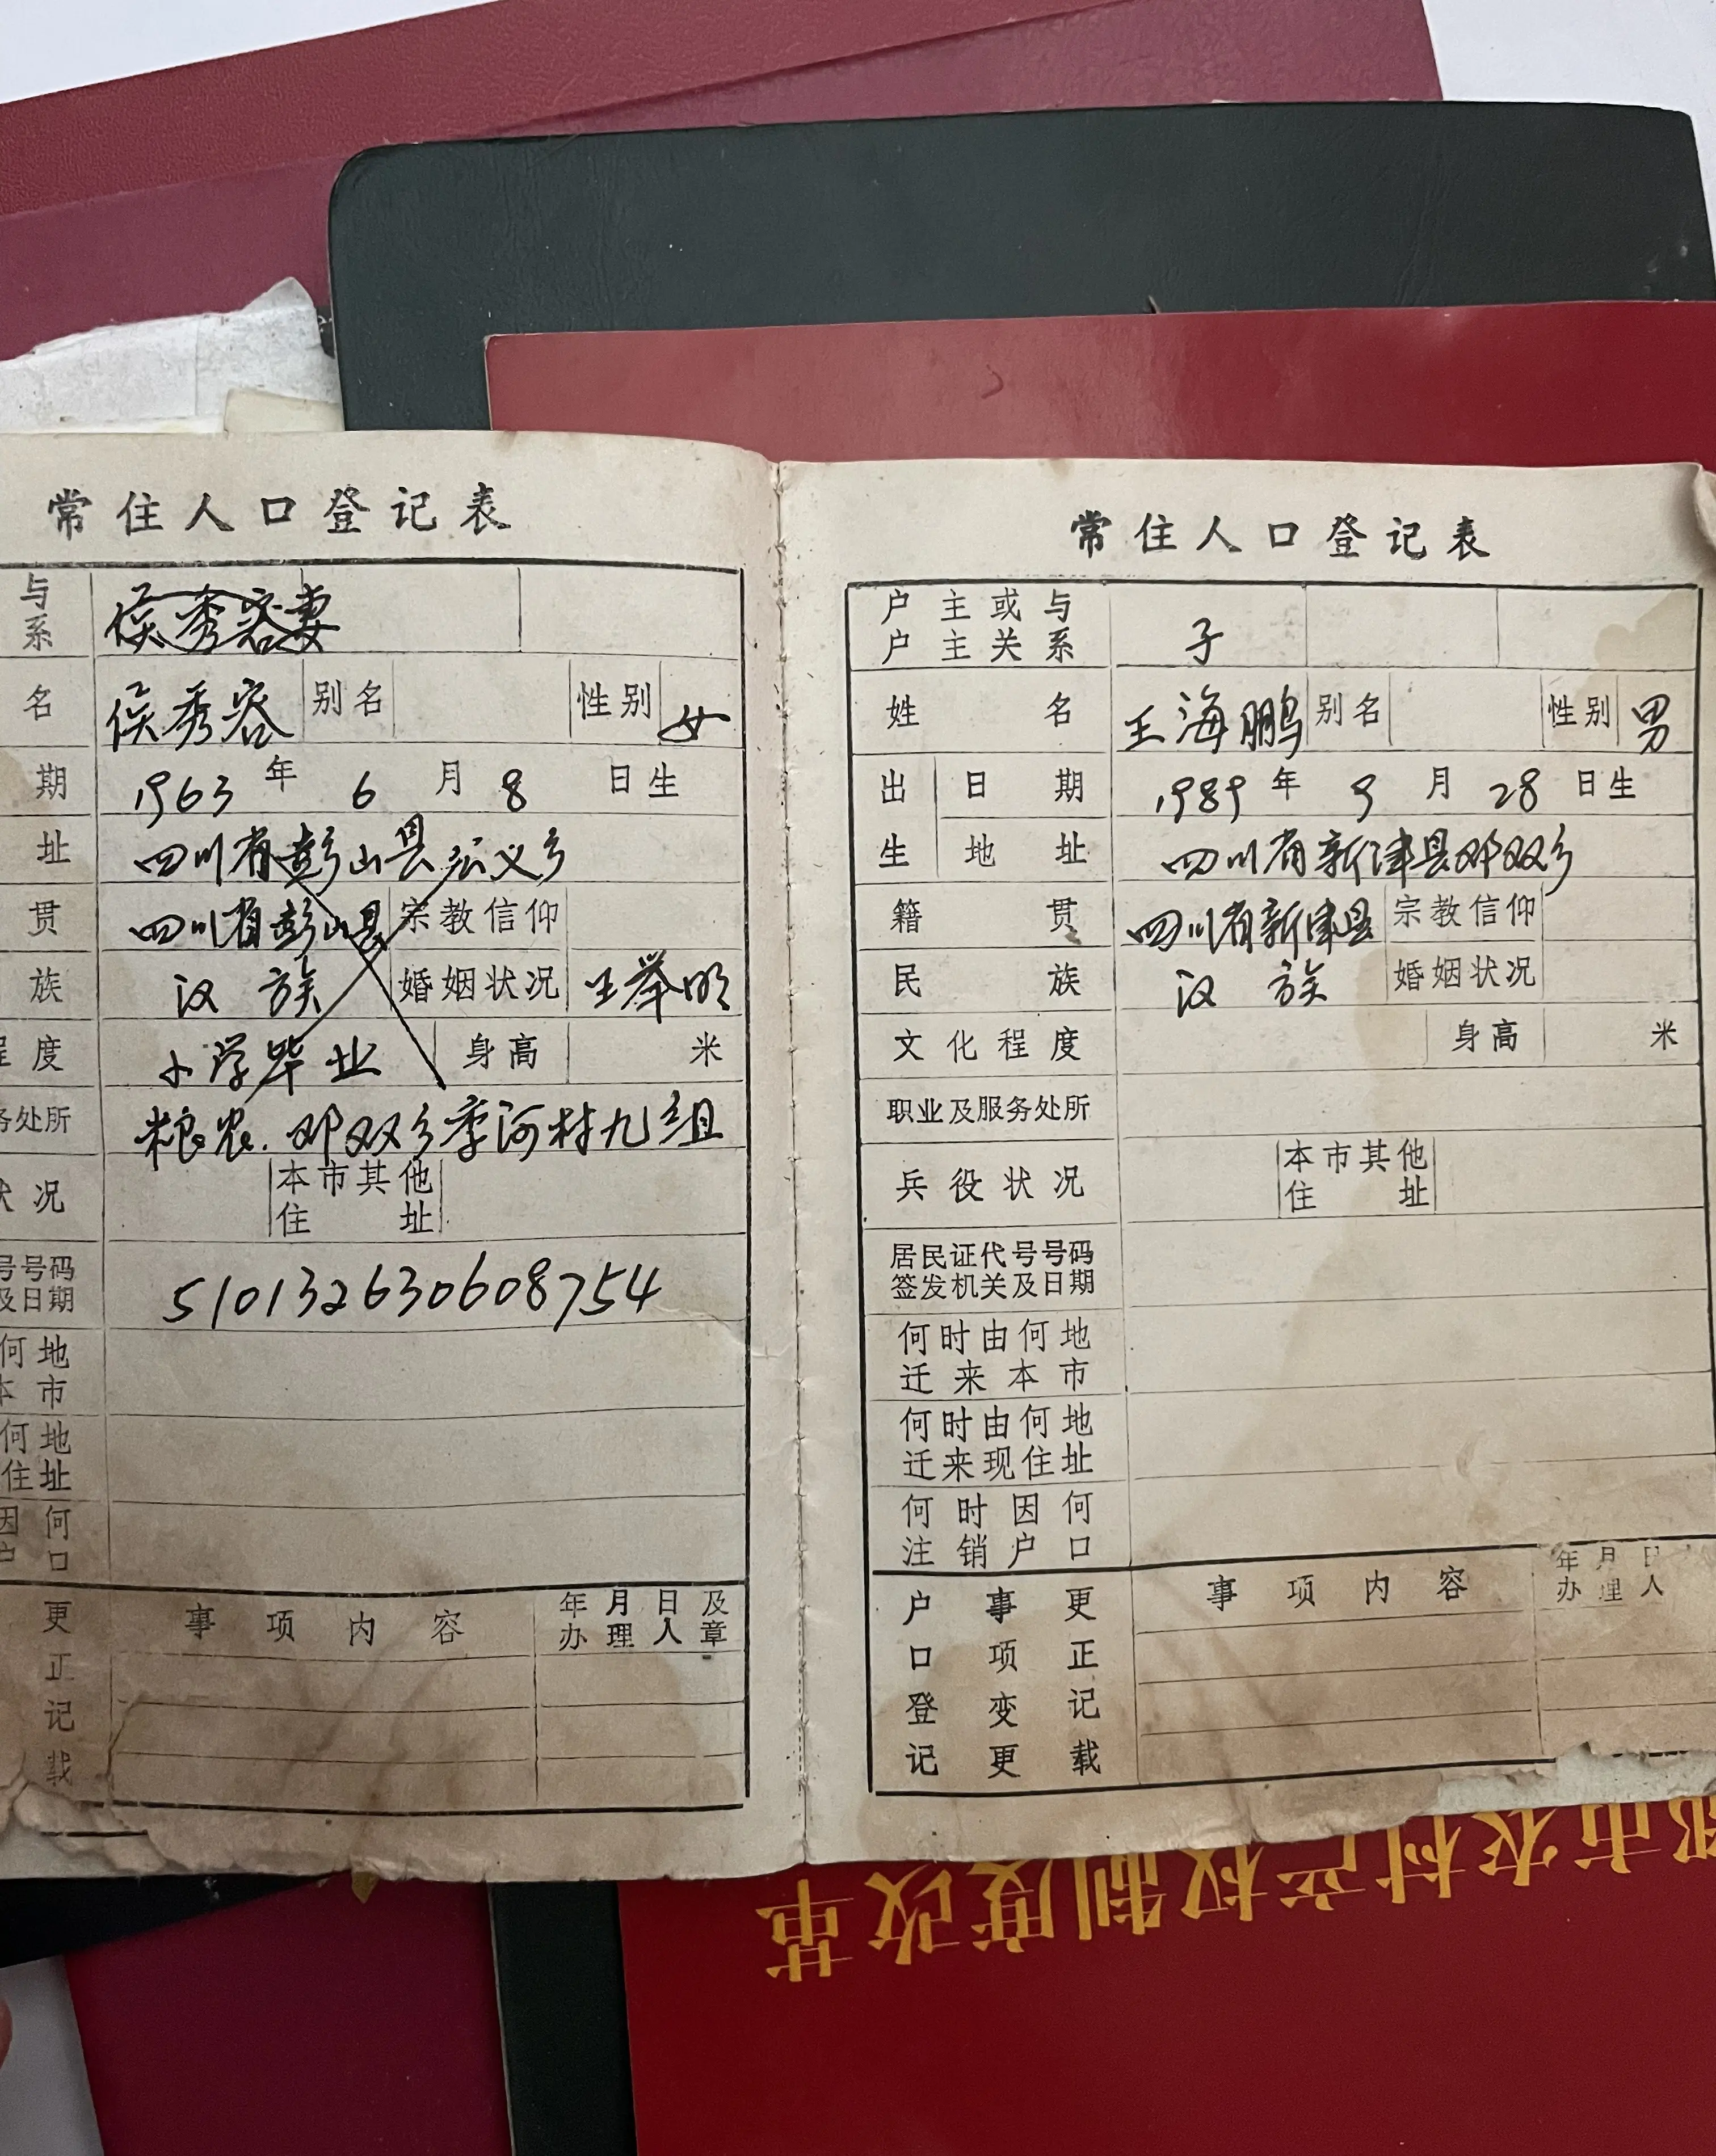 常住人口登记表
与
系
妻
名 侯秀容 别名 性别 女
期 1963年6月8日生
址 四川省彭山县 义乡
贯 四川省彭山县 宗教信仰
族 汉族 婚姻状况 王举明
程度 小学毕业 身高 米
务处所 粮农.邓双乡李河村九组
状况 本市其他
住址
号号码
及日期 510132630608754
何地
本市
何地
住址
因何
户口
更正记载 事项内容 年月日及
办理人章
常住人口登记表
户主或与
户主关系 子
姓名 王海鹏 别名 性别 男
出生 日期 1989年9月28日生
地址 四川省新津县邓双乡
籍贯 四川省新津县 宗教信仰
民族 汉族 婚姻状况
文化程度 身高 米
职业及服务处所
兵役状况 本市其他
住址
居民证代号号码
签发机关及日期
何时由何地
迁来本市
何时由何地
迁来现住址
何时因何
注销户口
户事更 事项内容 年月日
办理人
口项正
登变记
记更载
都市农村产权制度改革